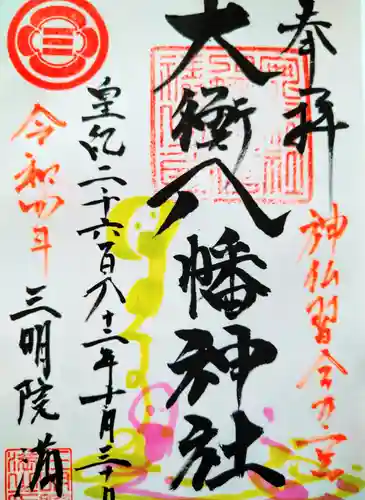 奉拝
神仏習合乃宮
大衡八幡神社
皇紀二千六百八十二年十月三十日
令和四年
三明院